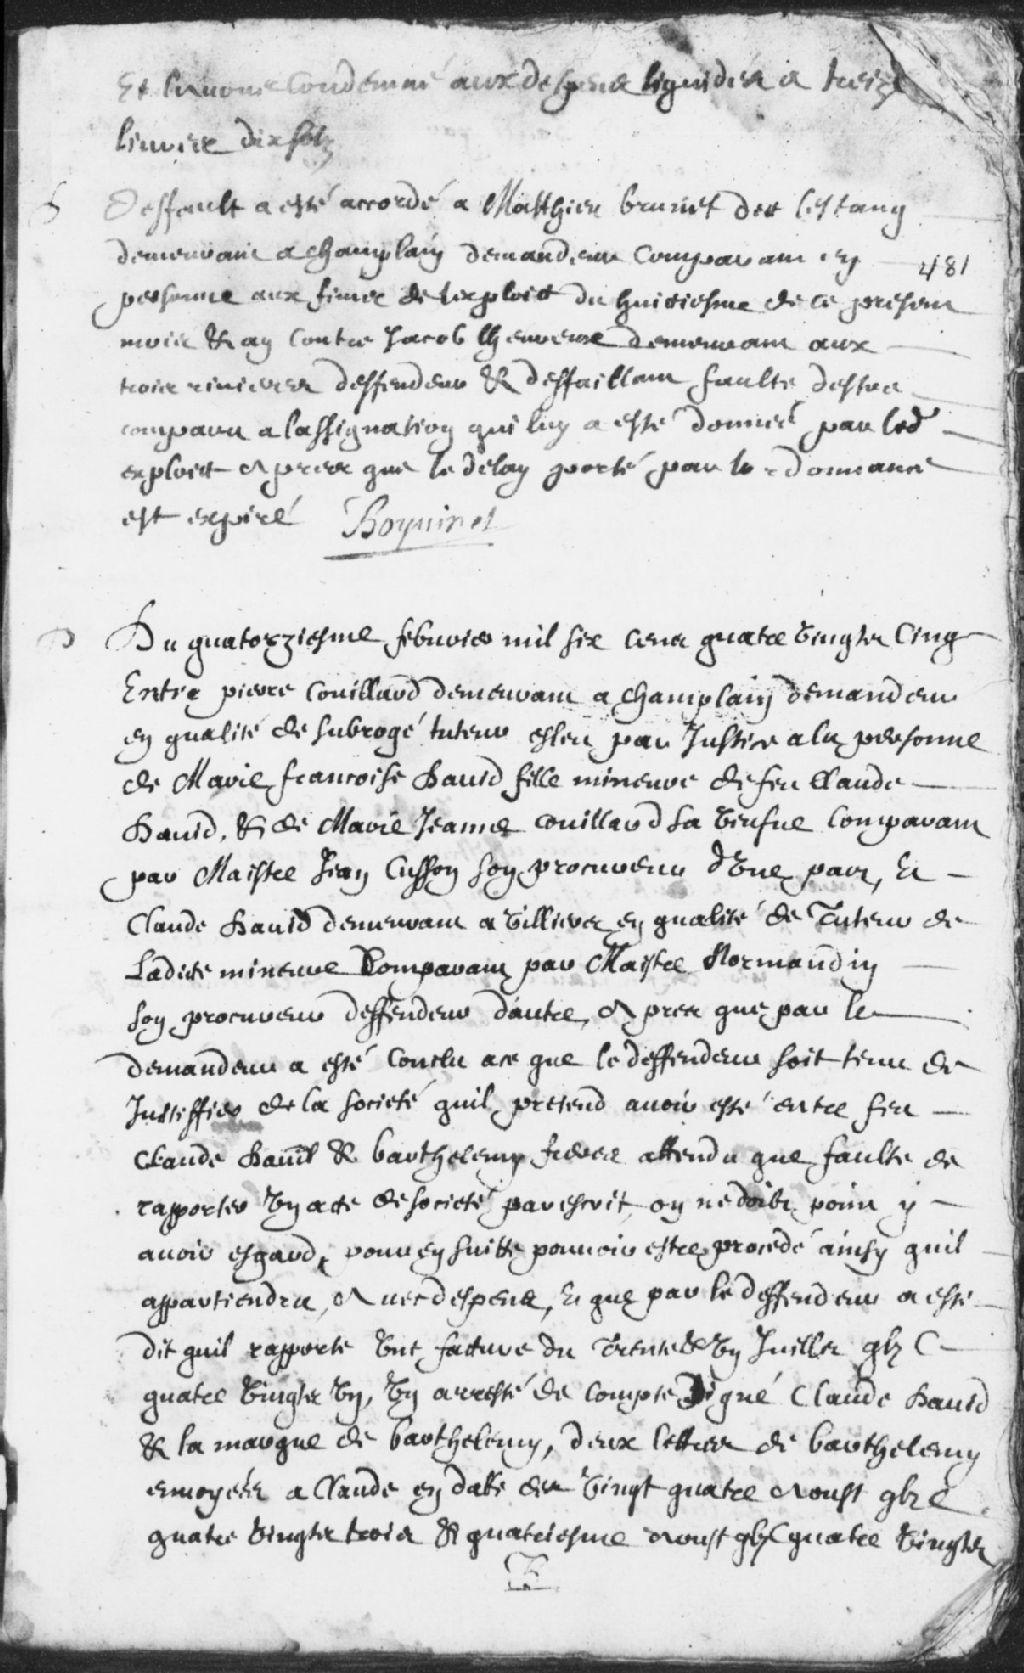 Et l'avons Condemné aux despens liquidés a treize
livres dix solz
Deffault a esté accordé a Matthieu brunet dit lestang
demeurant a champlain demandeur Comparant en
481
personne aux fins de lexploict du huictiesme de ce present
mois & an Contre Jacob demeurant aux
trois rivieres deffendeur & deffaillant faulte destre
comparu a lassignation qui luy a esté donnée par led
exploict Apres que le delay porté par lordonnance
est expiré Boyvinet
Du quatorziesme febvrier mil six cens quatre vingts Cinq
Entre pierre Couillaud demeurant a champlain demandeur
en qualité de subrogé tuteur esleu par Justice a la personne
de Marie francoise David fille mineure de feu Claude
David, & de Marie Jeanne couillaud sa veufue Comparant
par Maistre Jean Cusson son procureur d'une part, Et
Claude David demeurant a villiers en qualité de Tuteur de
Ladicte mineure Comparant par Maistre Normandin
son procureur deffendeur d'autre, Apres que par le
demandeur a esté Conclu a ce que le deffendeur soit tenu de
Justiffier de la societé quil pretend avoir esté entre feu
Claude David & barthelemy freres attendu que faulte de
rapporter un acte de societé par escrit on ne doibt point y
avoir esgard, pour en suitte pouvoir estre procedé ainsy quil
appartiendra, Avec despens, Et que par le deffendeur a esté
dit quil rapporte une facture du Trente & un Juillet gbjC
quatre vingts un, un arresté de Compte Signé Claude David
& la marque de barthelemy, deux lettres de barthelemy
envoyées a Claude en datte des vingt quatre Aoust gbjC
quatre vingts trois & quatriesme Aoust gbjC quatre vingts
B